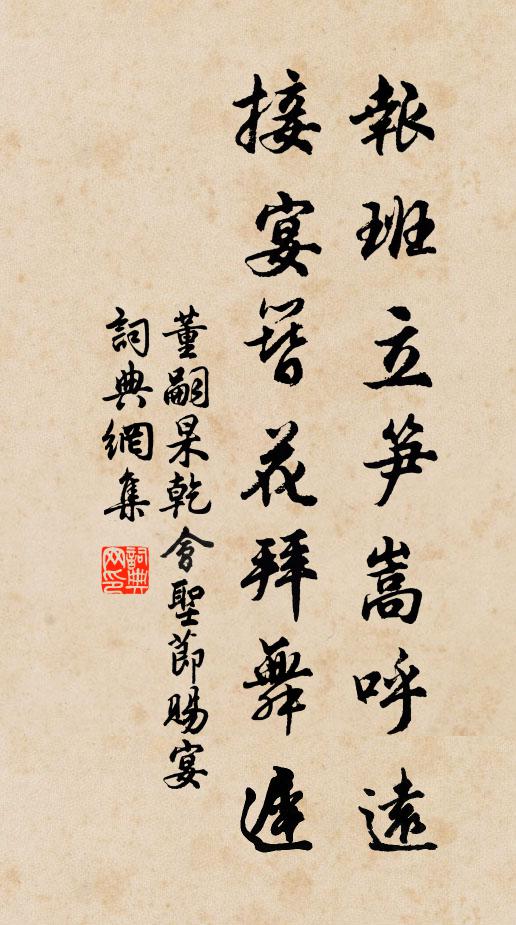 報班立笋嵩呼遠
接宴簪花拜舞遲
董嗣杲乾會聖節賜宴
詞典網集
詞典
网印